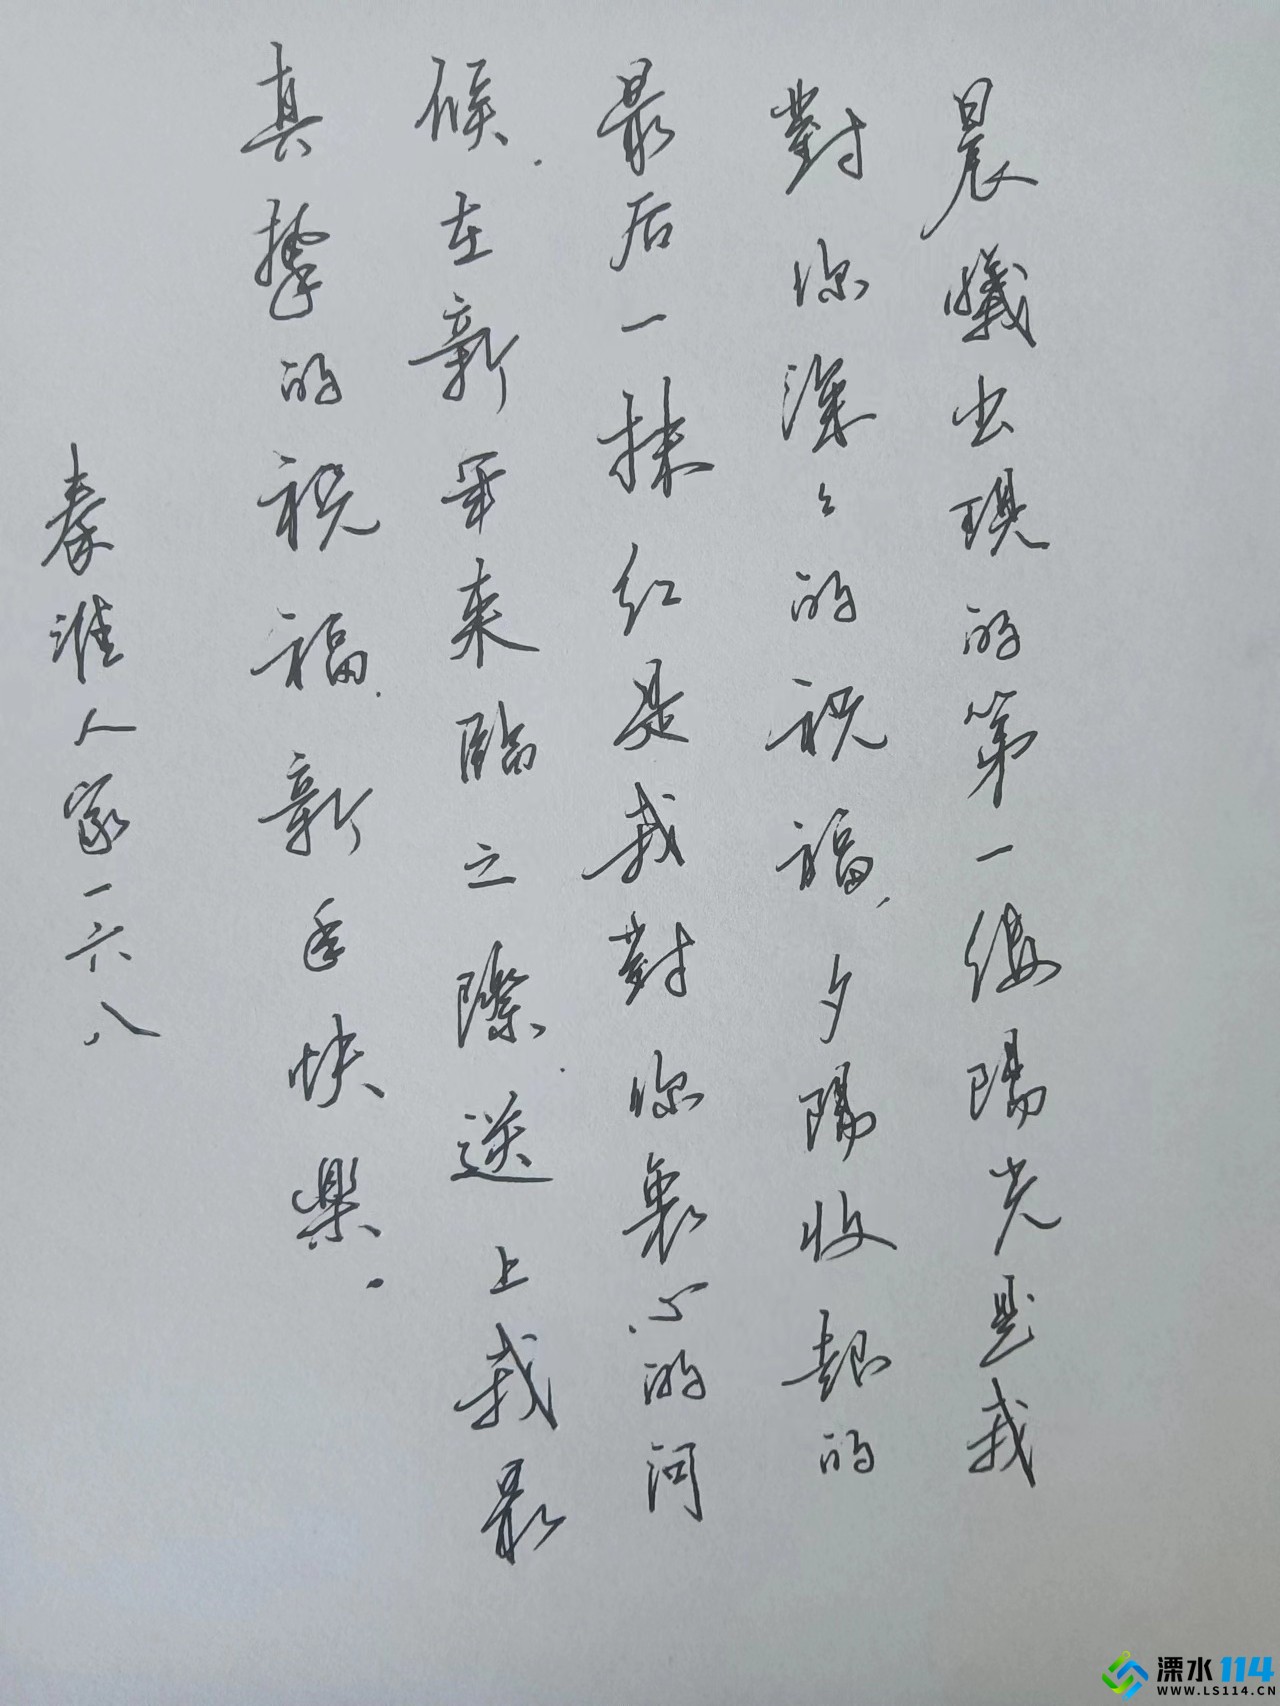 晨曦出現的第一缕陽光是我
對你深々的祝福,夕陽收起的
最后一抹红是我對你衷心的问
候,在新年来臨之際,送上我最
真挚的祝福,新年快樂.
秦淮人家一六八
溧水114
WWW.LS114.CN